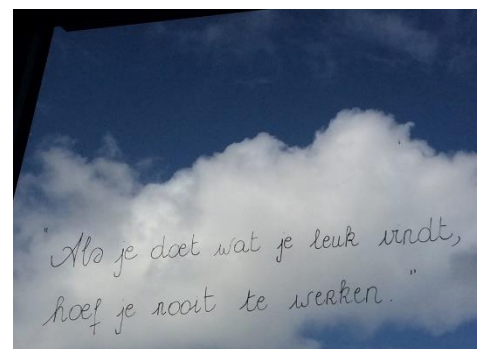 "Als je doet wat je leuk vindt,
hoef je nooit te werken."